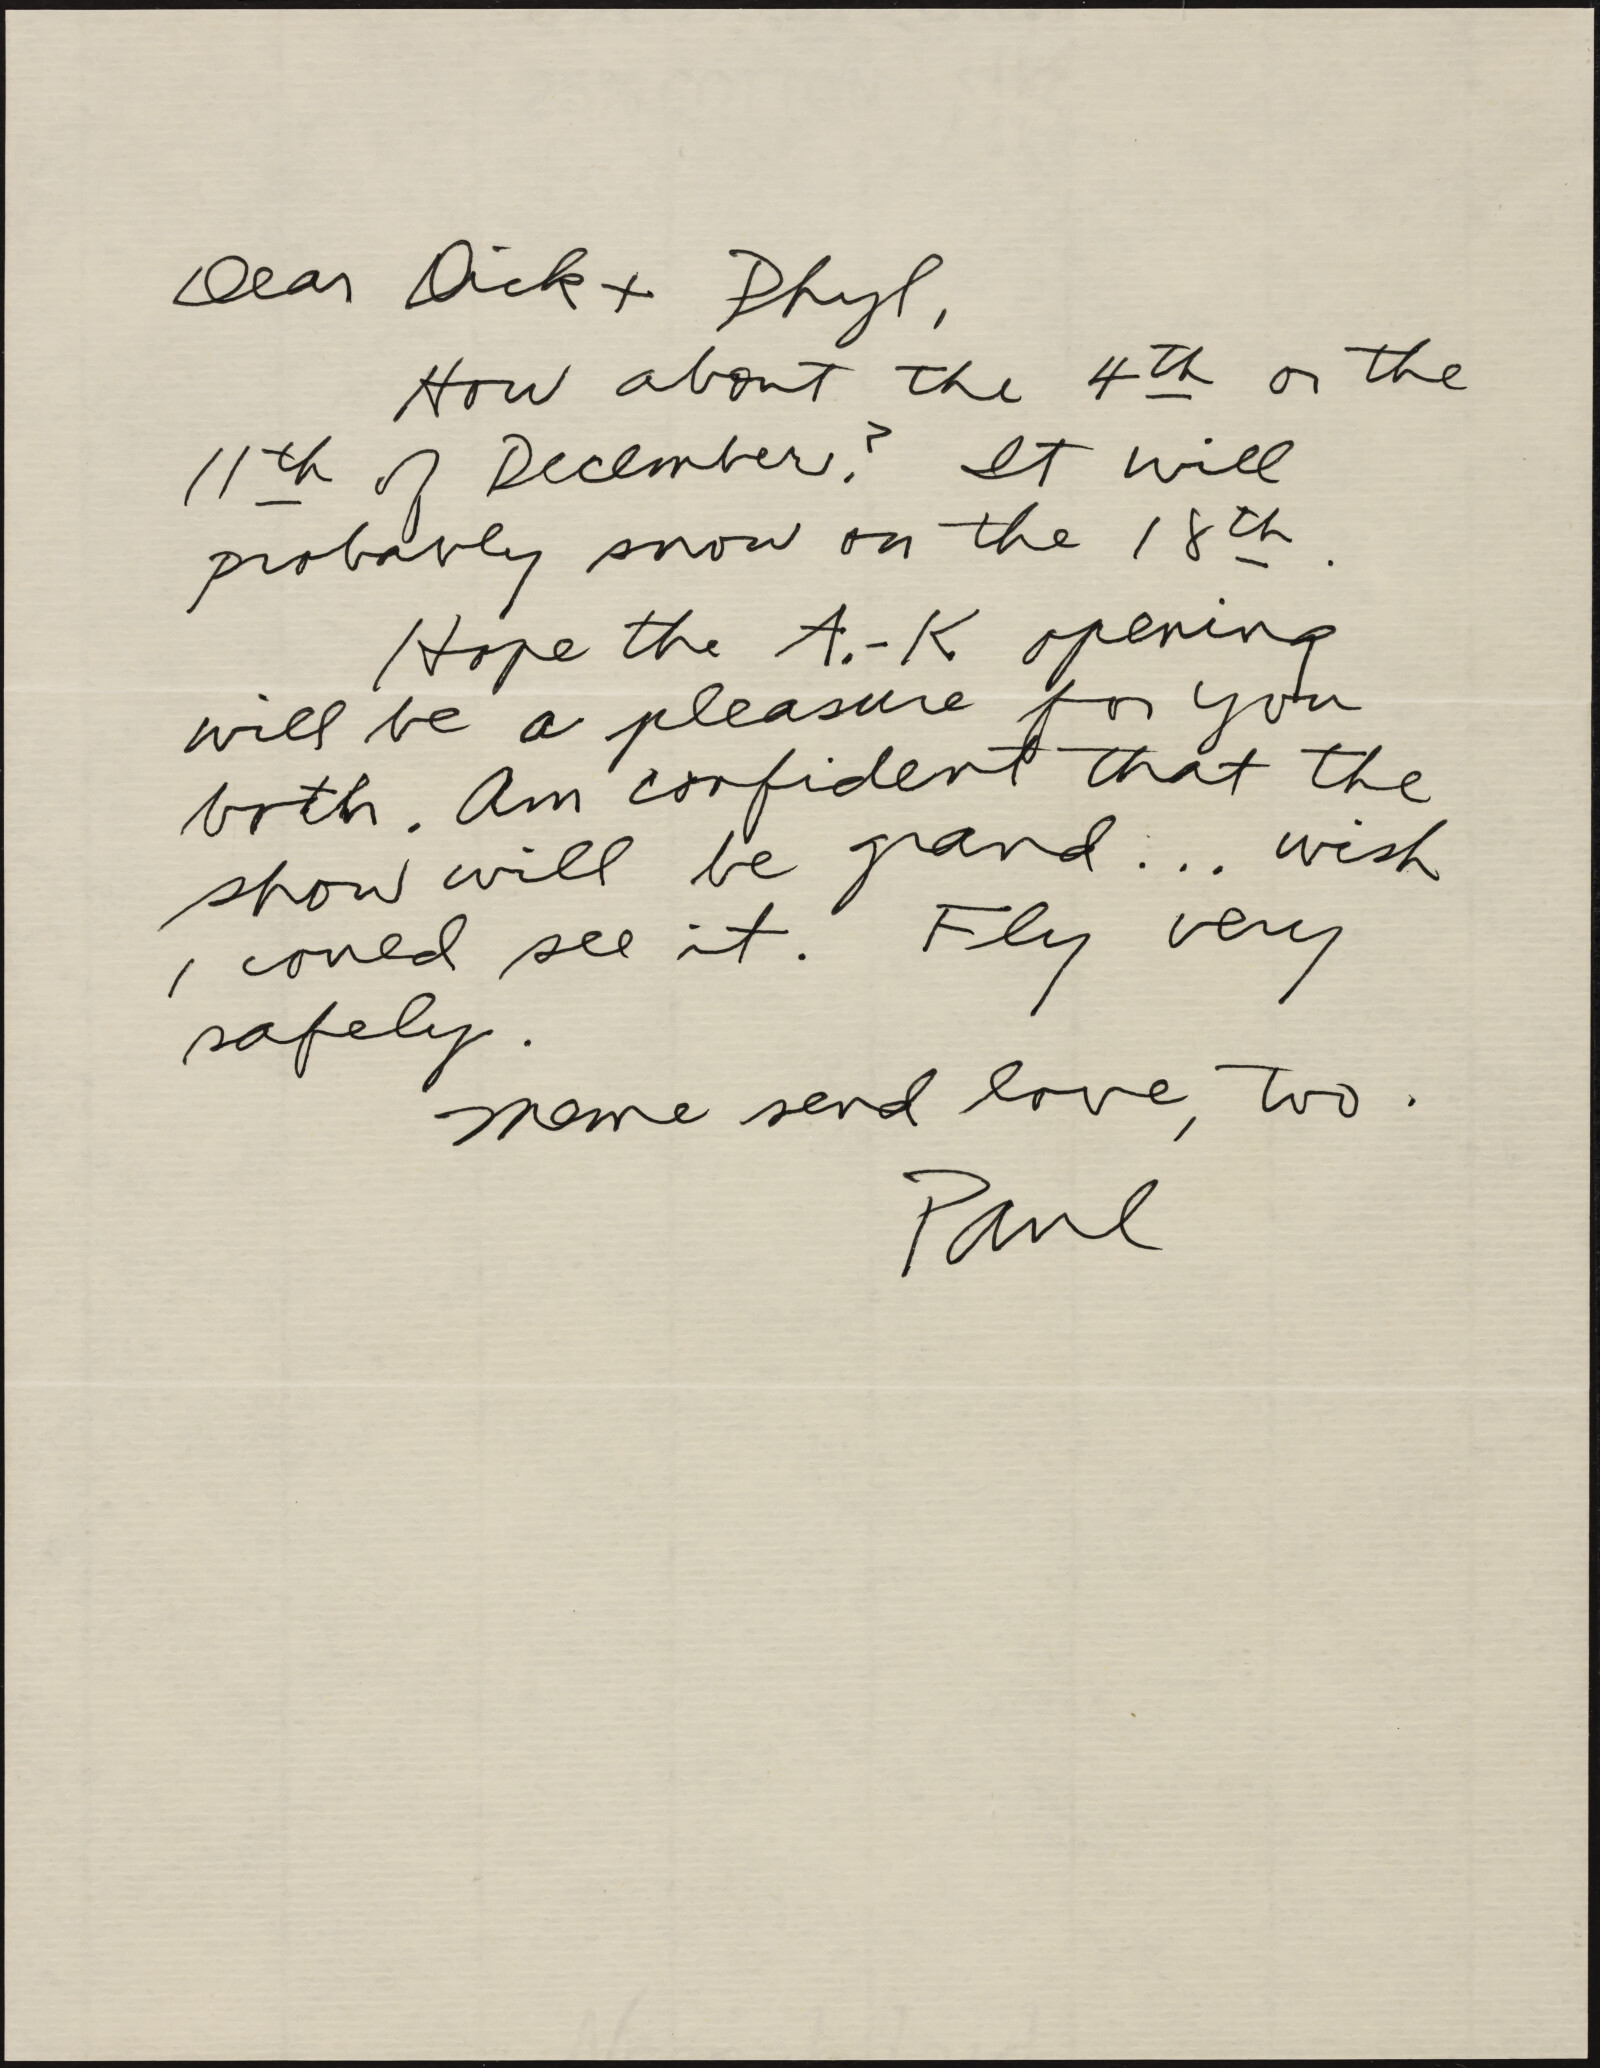 Dear Dick + Phyl,
How about the 4th or the
11th of December? It will
probably snow on the 18th.
Hope the A.-K opening
will be a pleasure for you
both. Am confident that the
show will be grand... wish
I could see it. Fly very
safely.
Meme send love, too.
Paul